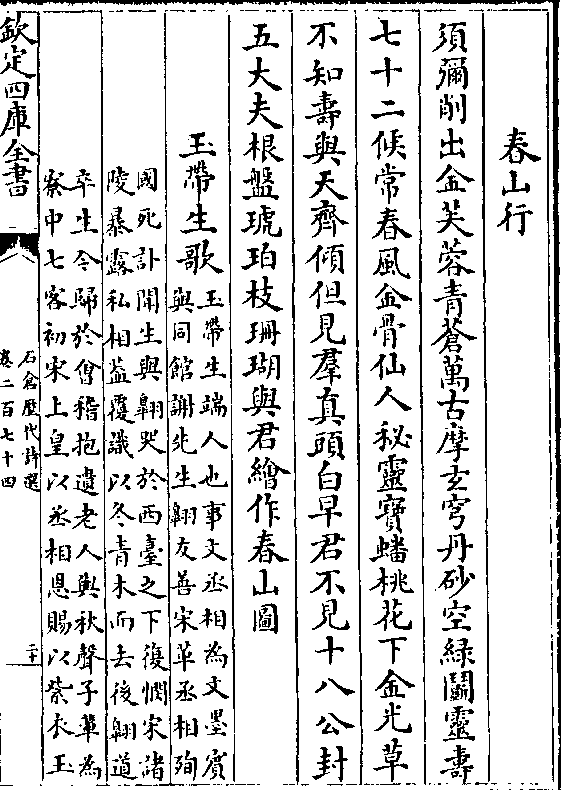 春山行
須彌削出金芙蓉青蒼萬古摩玄穹丹砂空緑闢靈壽
七十二候常春風金骨仙人秘靈寶蟠桃花下金光草
不知壽與天齊傾但見羣真頭白早君不見十八公封
五大夫根盤琥珀枝珊瑚與君繪作春山圖
玉帶生歌
玉帶生端人也事文丞相為文墨賓
與同館謝先生翺友善宋革丞相殉
國死訃聞生與翺哭於西臺之下復憫宋諸
陵暴露私相蓋覆識以冬青木而去後翺道
卒生今歸於㑹稽抱遺老人與秋聲子輩為
寮中七客初宋上皇以丞相恩賜以紫衣玉
欽定四庫全書
石倉歴代詩選
卷二百七十四
二十